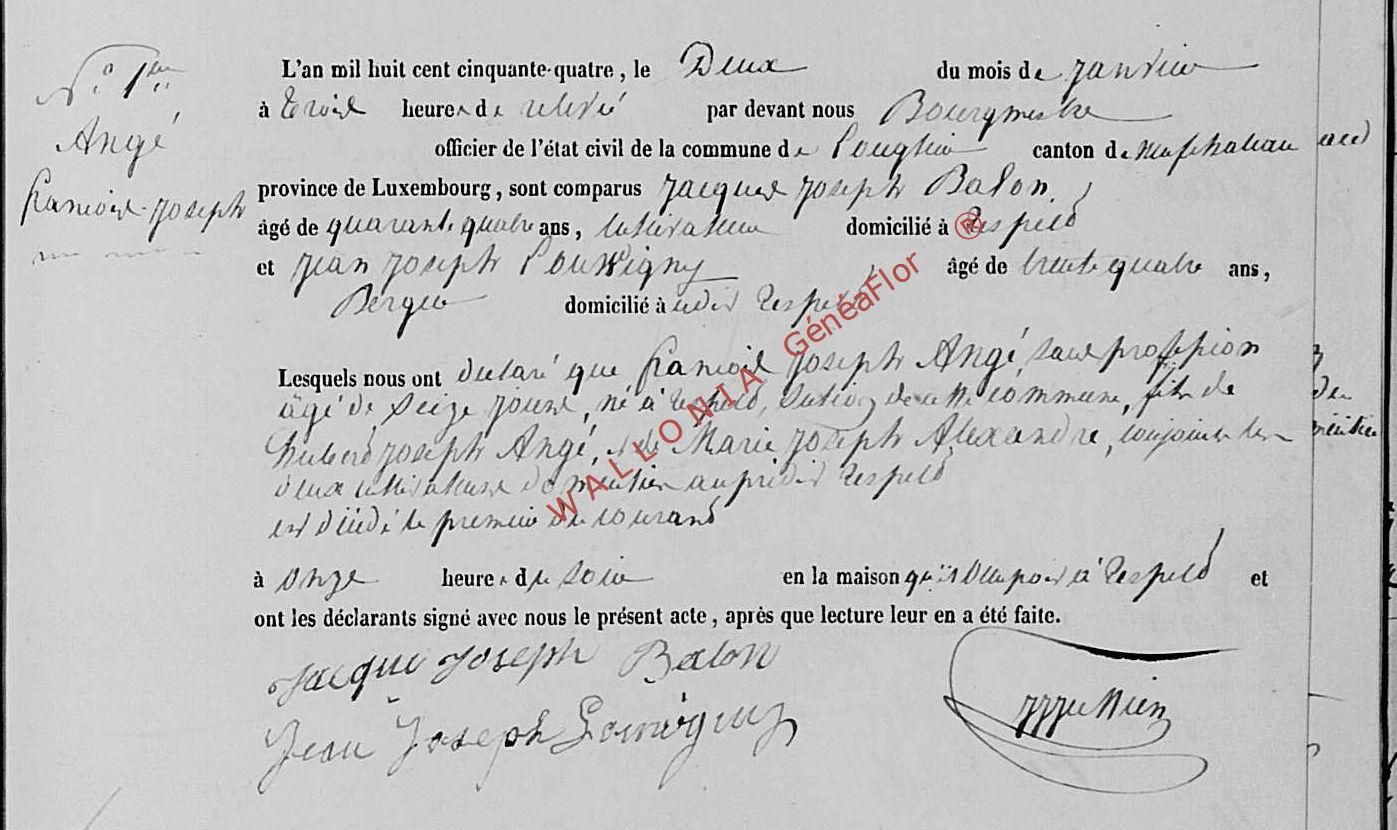 N.° 1er
Angé
françois-Joseph
L'an mil huit cent cinquante-quatre, le Deux du mois de Janvier
à trois heures de relevé par devant nous Bourgmestre
officier de l'état civil de la commune de Longlier canton de Neufchateau
province de Luxembourg, sont comparus Jacques Joseph Balon
âgé de quarante quatre ans, cultivateur domicilié à Respelt
et Jean Joseph âgé de trente quatre ans,
Berger domicilié à Respelt
Lesquels nous ont declaré que françois Joseph Angé, sans profession
âgé de seize jours, né à Respelt, section de cette commune, fils de
hubert Joseph Angé, et de Marie Joseph Alexandre, conjoints
deux cultivateurs Respelt
est décédé le premier du courant
à onze heures du soir en la maison à Respelt et
ont les déclarants signé avec nous le présent acte, après que lecture leur en a été faite.
Jacque Joseph Balon
Jean Joseph
WALLONIA GénéaFlor ®